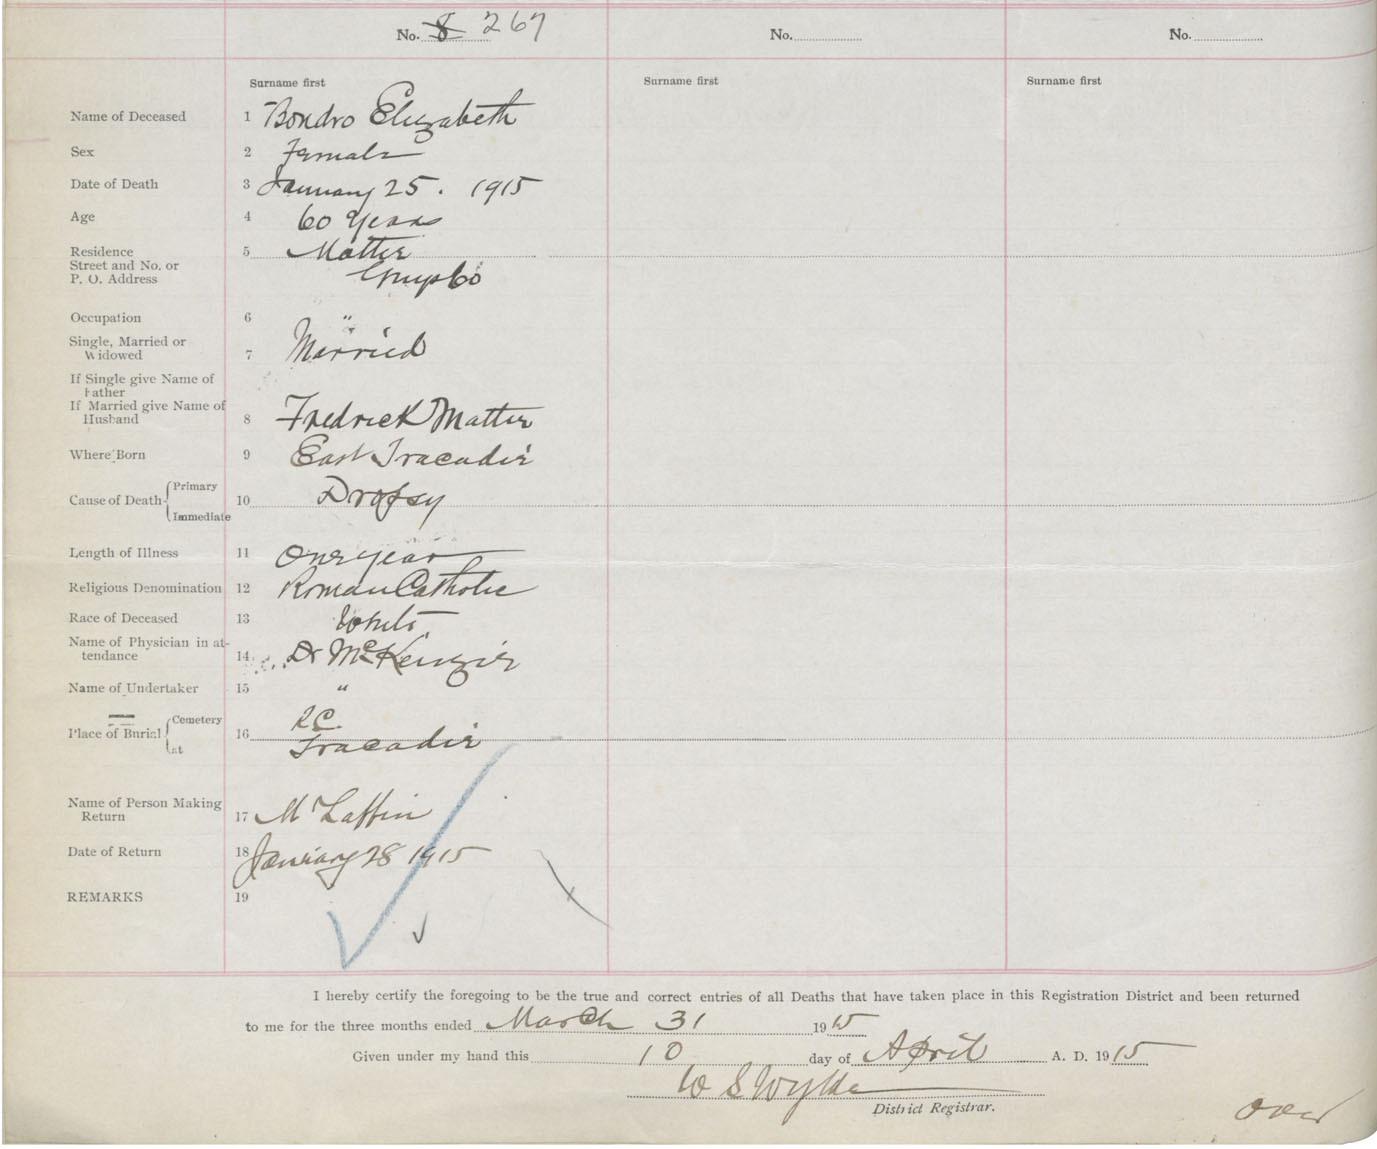 No. 8 267
No.
No.
Surname first
Surname first
Surname first
Name of Deceased 1 Bondro Elizabeth
Sex 2 Female
Date of Death 3 January 25. 1915
Age 4 60 years
Residence 5 Mattie
Street and No. or
P. O. Address Guysbo
Occupation 6 "
Single, Married or
Widowed 7 Married
If Single give Name of
Father
If Married give Name of
Husband 8 Fredrick Mattie
Where Born 9 East Tracadie
Cause of Death Primary 10 Dropsy
Immediate
Length of Illness 11 One year
Religious Denomination 12 Roman Catholic
Race of Deceased 13 White
Name of Physician in at-
tendance 14 Dr McKenzie
Name of Undertaker 15 "
Place of Burial Cemetery 16 R.C.
at Tracadie
Name of Person Making
Return 17 M Laffin
Date of Return 18 January 28 1915
REMARKS 19
I hereby certify the foregoing to be the true and correct entries of all Deaths that have taken place in this Registration District and been returned
to me for the three months ended March 31 1915
Given under my hand this 10 day of April A. D. 1915
W S Wylde
District Registrar.
over